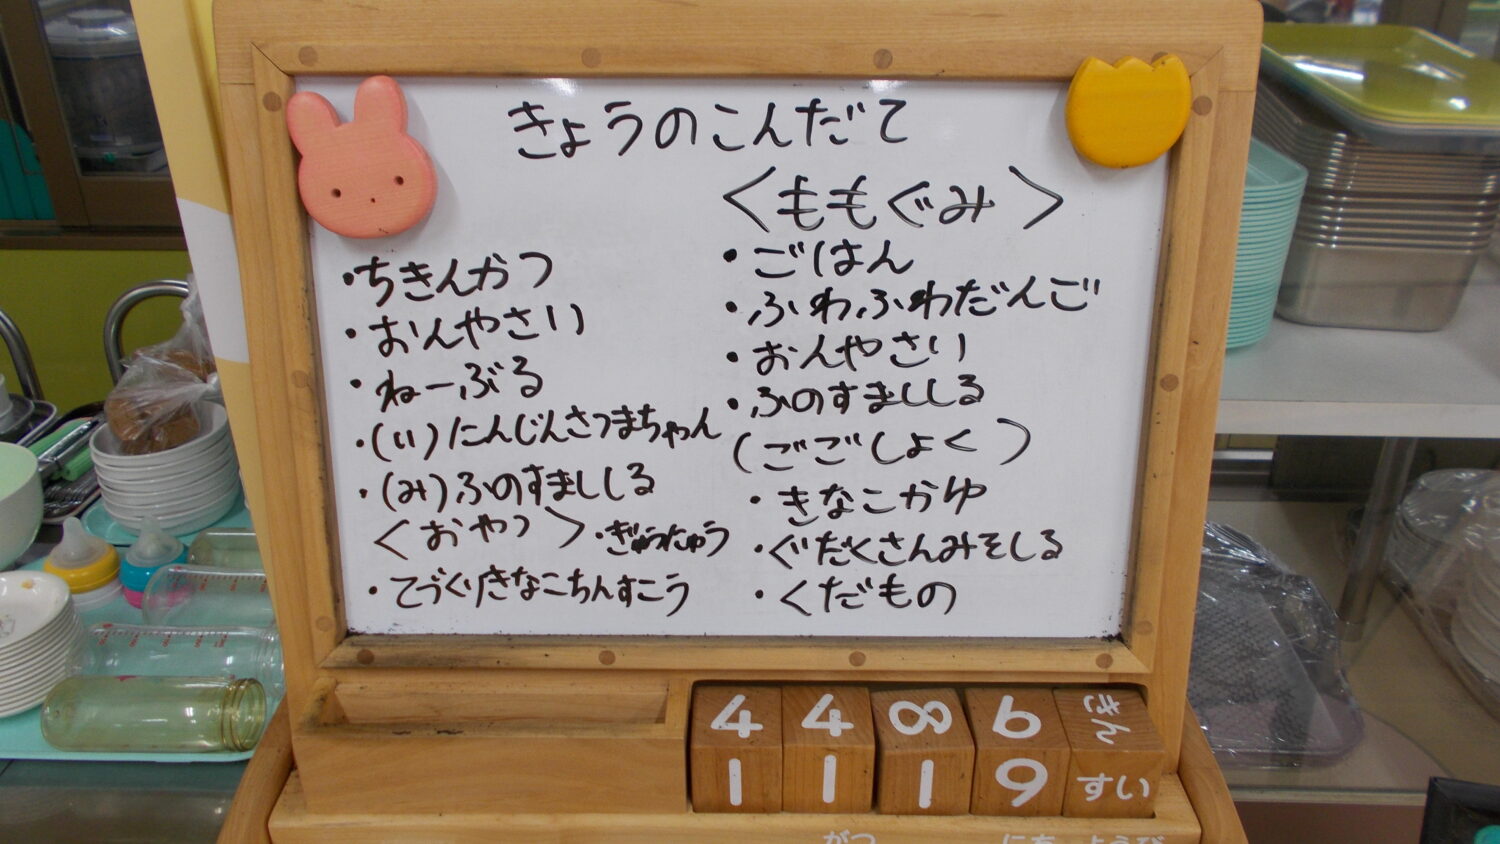 きょうのこんだて
・ちきんかつ
・おんやさい
・ねーぶる
・(い)にんじんさつまちゃん
・(み)ふのすまししる
<おやつ> ・ぎゅうにゅう
・てづくりきなこちんすこう
<ももぐみ>
・ごはん
・ふわふわだんご
・おんやさい
・ふのすまししる
(ごごしょく)
・きなこかゆ
・ぐだくさんみそしる
・くだもの
4 4 8 6 きん
1 1 1 9 すい
がつ にち ようび